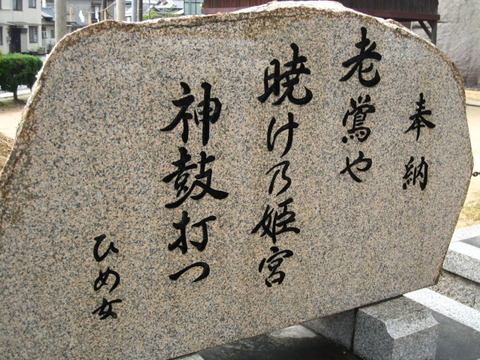 奉納
老鶯や
暁け乃姫宮
神鼓打つ
ひめ女